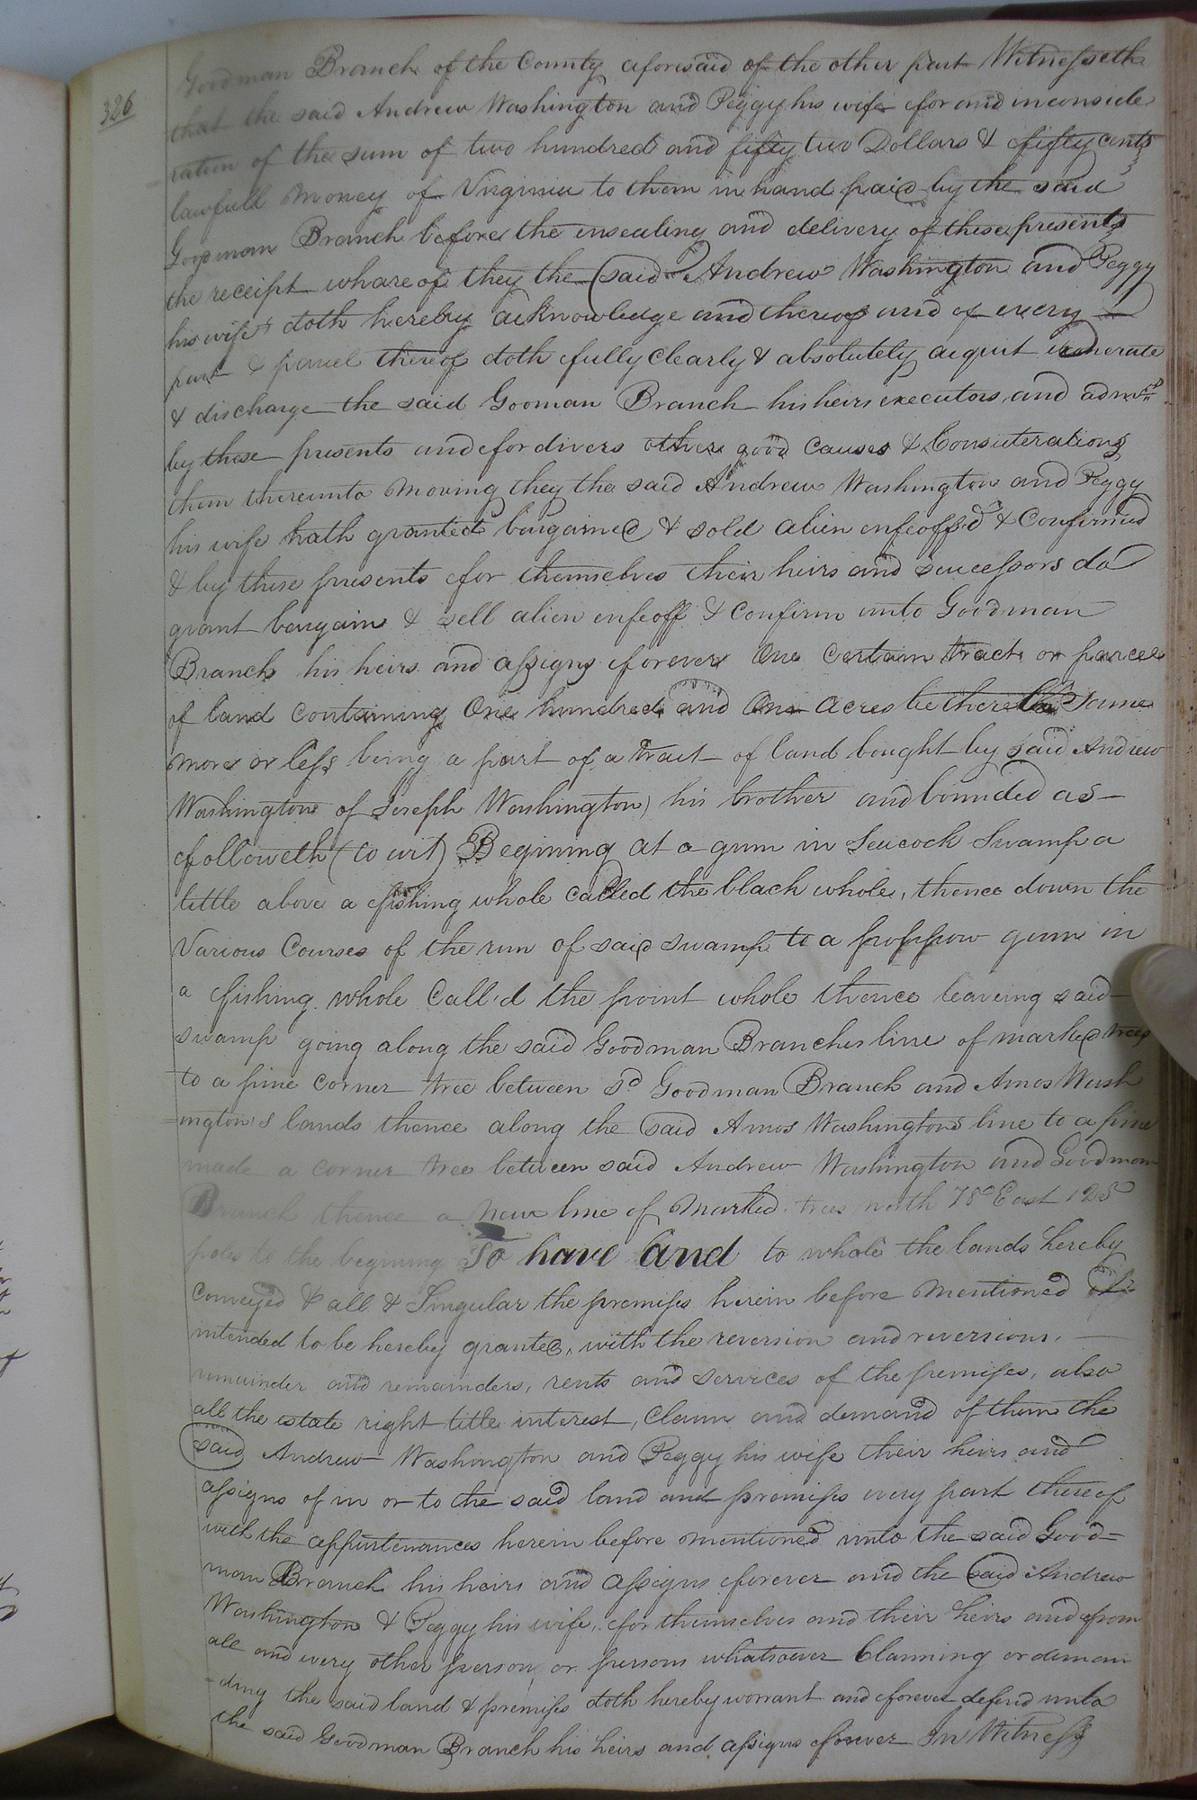 326
Goodman Branch of the County aforesaid of the other part Witnesseth
that the said Andrew Washington and Peggy his wife for and in conside
ration of the sum of two hundred and fifty two Dollars & fifty cents
lawfull money of Virginia to them in hand paid by the said
Goodman Branch before the ensealing and delivery of these presents
the receipt whareof they the said Andrew Washington and Peggy
his wife doth hereby acknowledge and thereof and of every
part & parcel thereof doth fully clearly & absolutely acquit exonerate
& discharge the said Gooman Branch his heirs executors and admrs
by these presents and for divers other good causes & Considerations
them thereunto moving they the said Andrew Washington and Peggy
his wife hath granted bargained & sold alien enfeoff'd & Confirmed
& by these presents for themselves their heirs and successors do
grant bargain & sell alien enfeoff & confirm unto Goodman
Branch his heirs and assigns forever One Certain tract or parcel
of land containing One hundred and One acres be there the Same
more or less being a part of a tract of land bought by said Andrew
Washington of Joseph Washington his brother and bounded as
followeth (to wit) Begining at a gum in Seacock Swamp a
little above a fishing whole called the black whole, thence down the
Various Courses of the run of said swamp to a gum in
a fishing whole Call'd the point whole thence leaveing said
swamp going along the said Goodman Branches line of marked trees
to a pine corner tree between sd Goodman Branch and Amos Wash
ington's lands thence along the said Amos Washingtons line to a pine
made a corner tree between said Andrew Washington and Goodman
Branch thence a New line of Marked trees north 78° East 125
poles to the begining To have and to whole the lands hereby
Conveyed & all & Singular the premises herein before Mentioned
intended to be hereby granted, with the reversion and reversions,
remainder and remainders, rents and services of the premises, also
all the estate right title interest, Claim and demand of them the
said Andrew Washington and Peggy his wife their heirs and
assigns of in or to the said land and premises every part thereof
with the appurtenances herein before mentioned unto the said Good=
man Branch his heirs and assigns forever and the said Andrew
Washington & Peggy his wife, for themselves and their heirs and from
all and every other person or persons whatsoever Claiming or deman
ding the said land & premises doth hereby worrant and forever defend unto
the said Goodman Branch his heirs and assigns forever In Witness